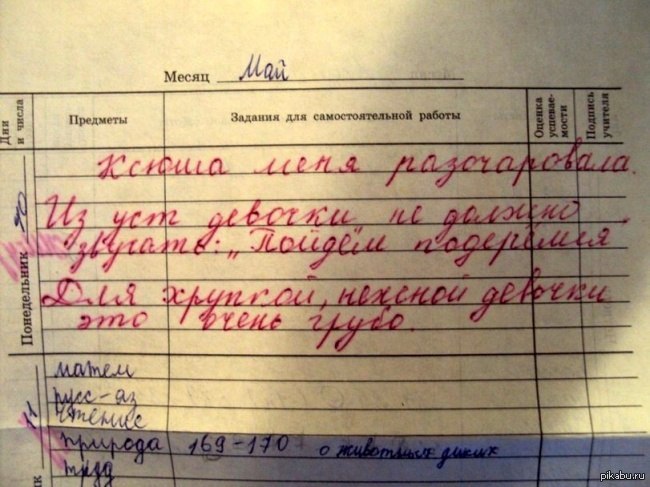 Месяц Май
Дни и числа
Предметы
Задания для самостоятельной работы
Оценка успевае-
мости
Подпись учителя
Понедельник
Ксюша меня разочаровала.
Из уст девочки не должно
звучать: „Пойдём подерёмся
Для хрупкой, нежной девочки
это очень грубо.
11
матем
русс-яз
чтение
природа 169-170 о животных диких
труд
pikabu.ru